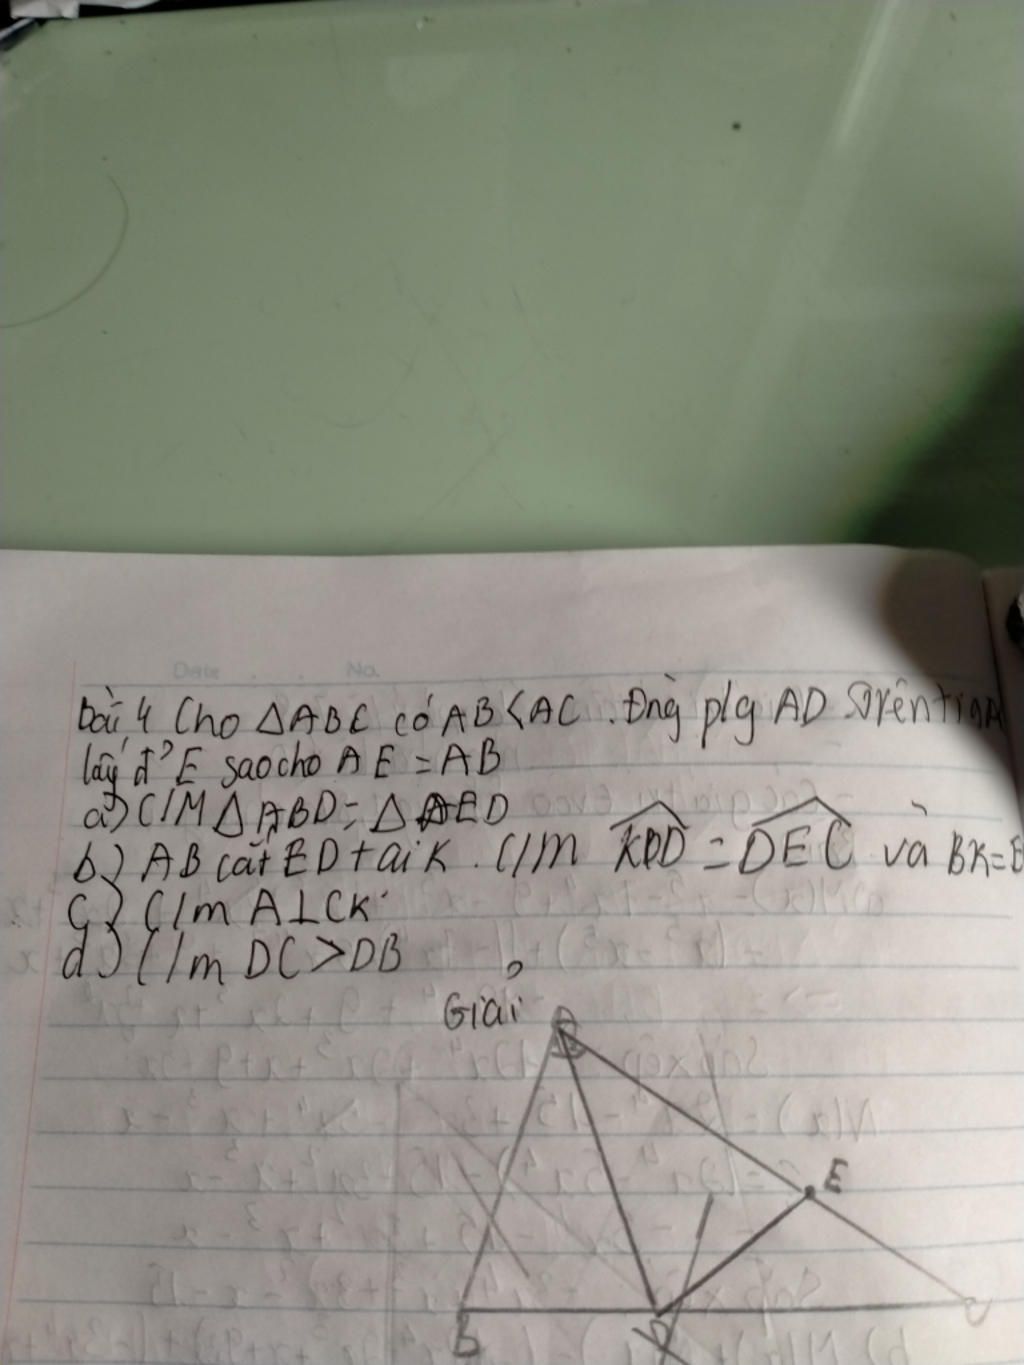 Date No.
bài 4 Cho △ABC có AB<AC. Đng p/g AD trên tia
lấy đ' E sao cho AE = AB
a) C/M △ABD = △AED
b) AB cắt ED tại K. C/m = DEC và BK=E
c) C/m A⊥CK
d) C/m DC>DB
Giải
A
E
B D C